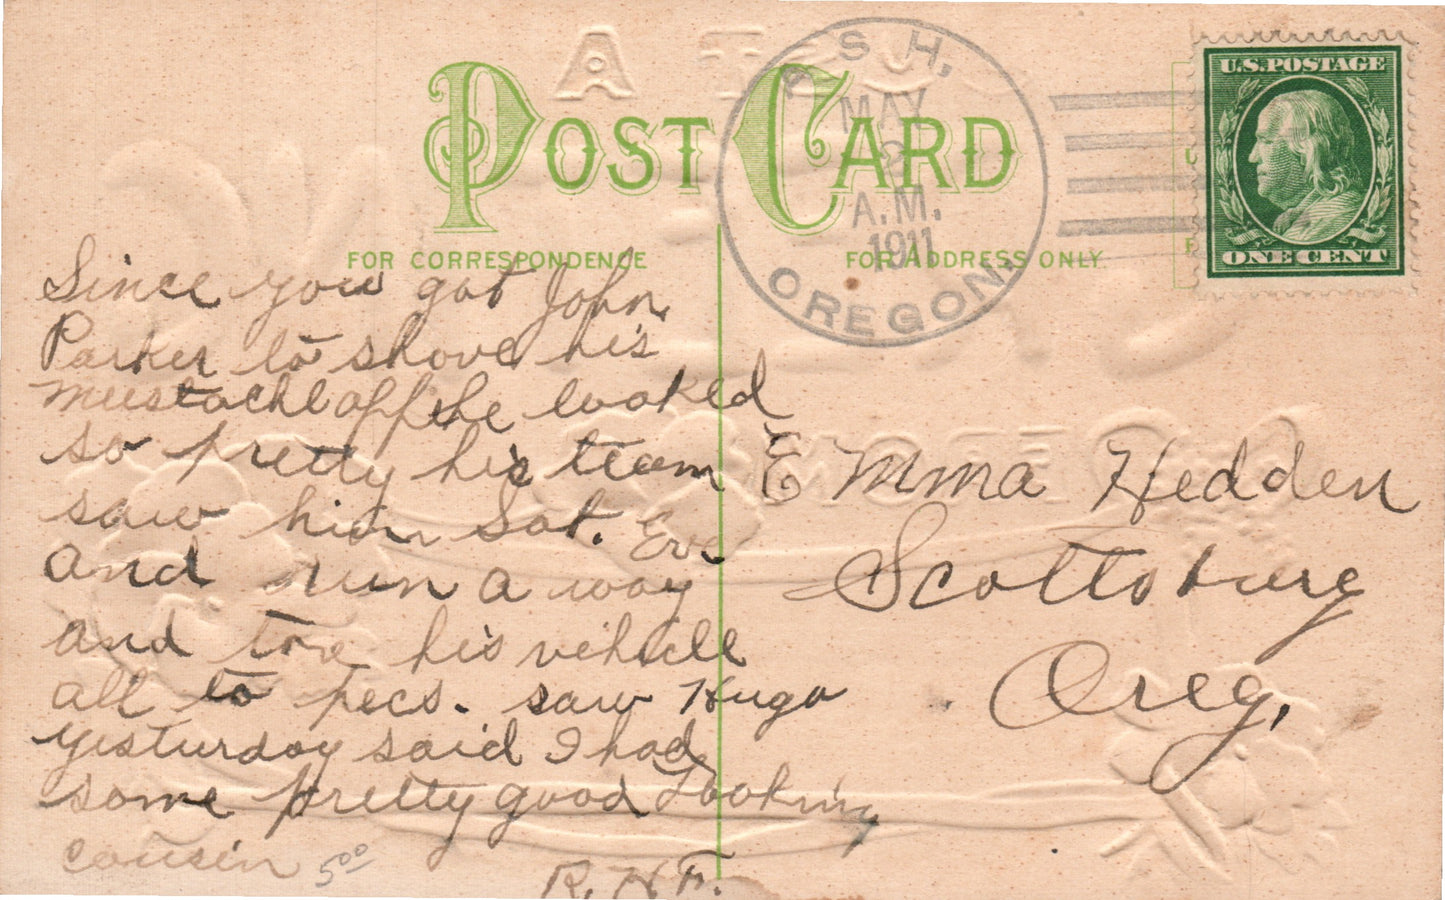 POST CARD
FOR CORRESPONDENCE
FOR ADDRESS ONLY
SH,
MAY
A.M.
1911
OREGON.
U.S.POSTAGE
ONE CENT
Since you got John
Parker to shove his
mustache off he looked
so pretty his team
saw him Sat. Eve.
and run a way
and tore his vehicle
all to pecs. saw Hugo
yesturday said I had
some pretty good looking
cousin
R.H.F.
5.00
Emma Hedden
Scottsburg
Oreg.